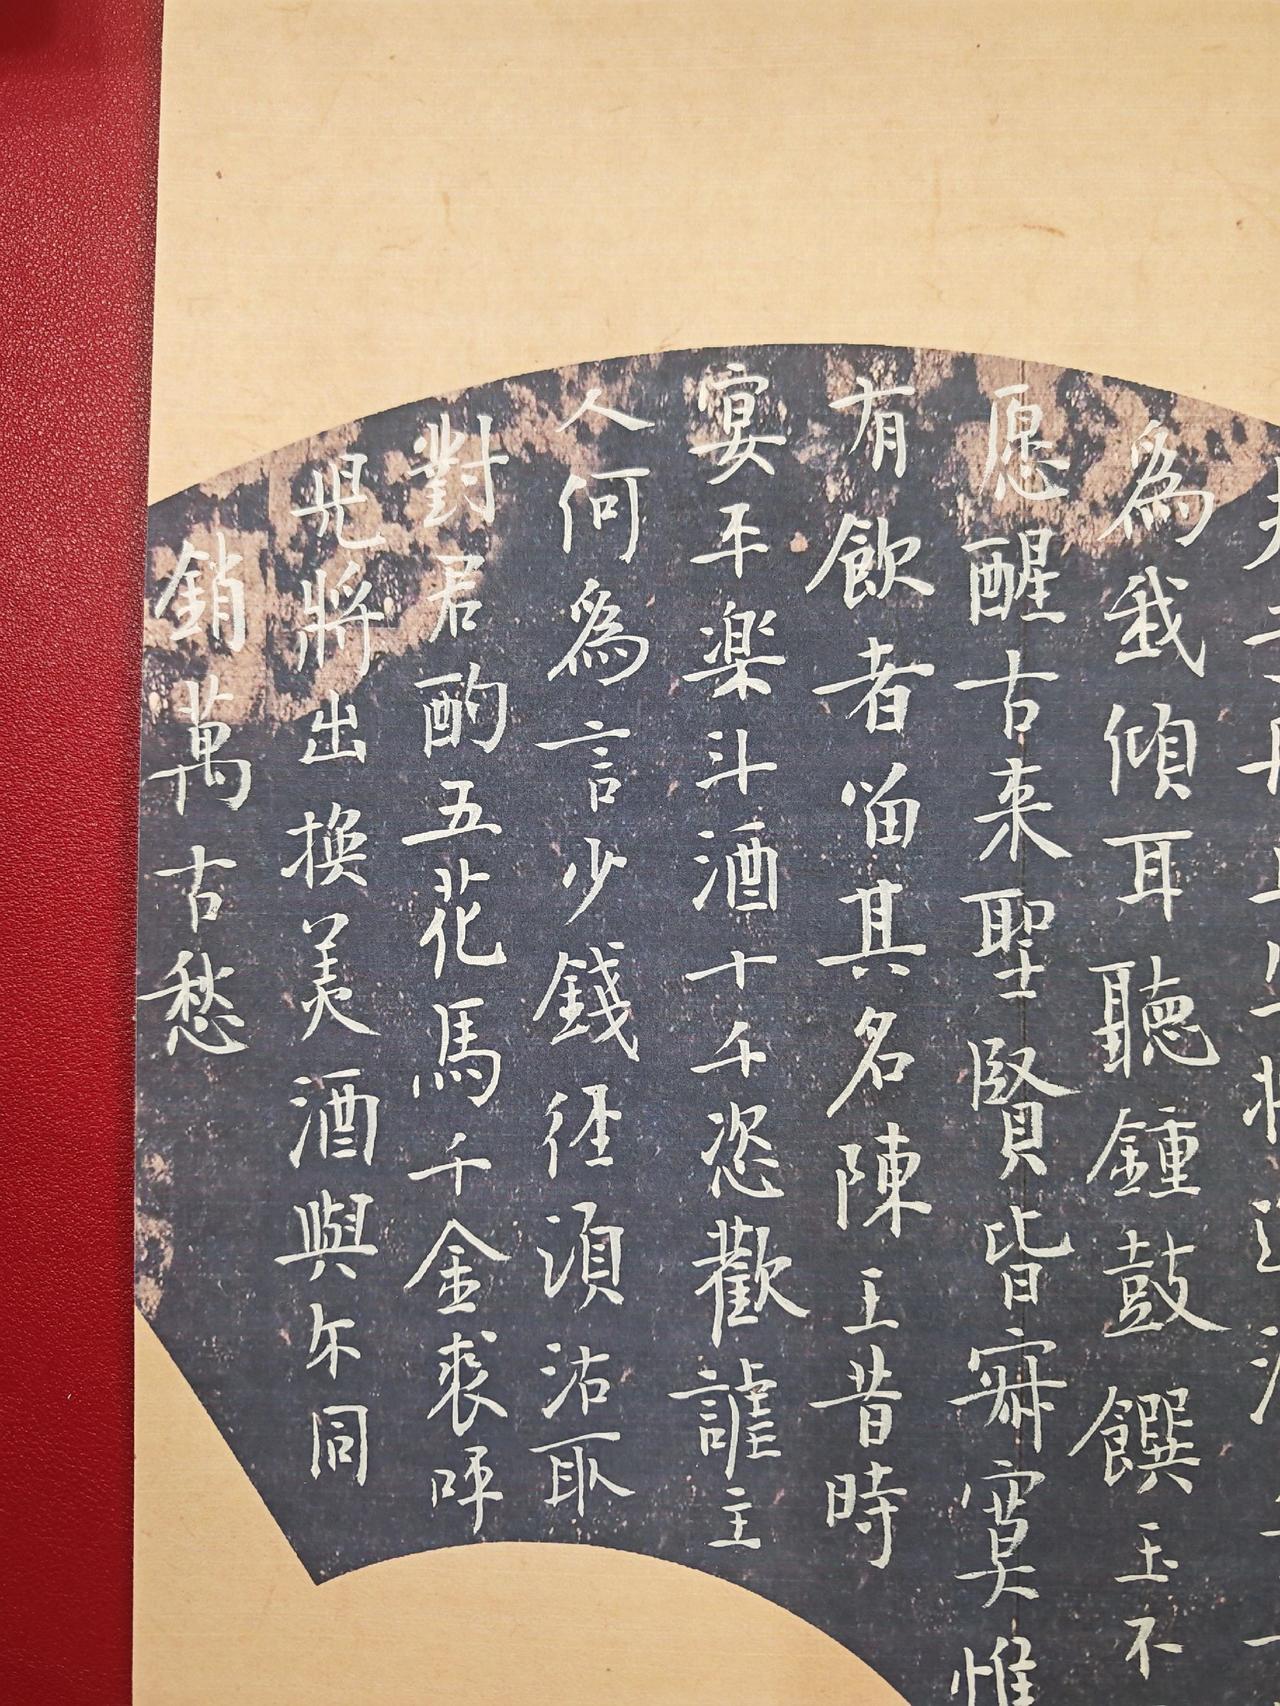 為我傾耳聽鍾鼓饌玉不
愿醒古来聖賢皆寂寞惟
有飲者留其名陳王昔時
宴平楽斗酒十千恣歡謔主
人何為言少錢径須沽取
對君酌五花馬千金裘呼
児將出換美酒與尓同
銷萬古愁